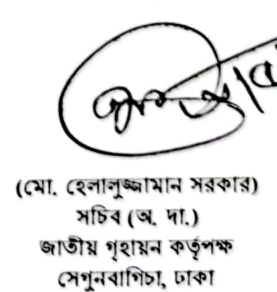 (মো. হেলালুজ্জামান সরকার)
সচিব (অ. দা.)
জাতীয় গৃহায়ন কর্তৃপক্ষ
সেগুনবাগিচা, ঢাকা